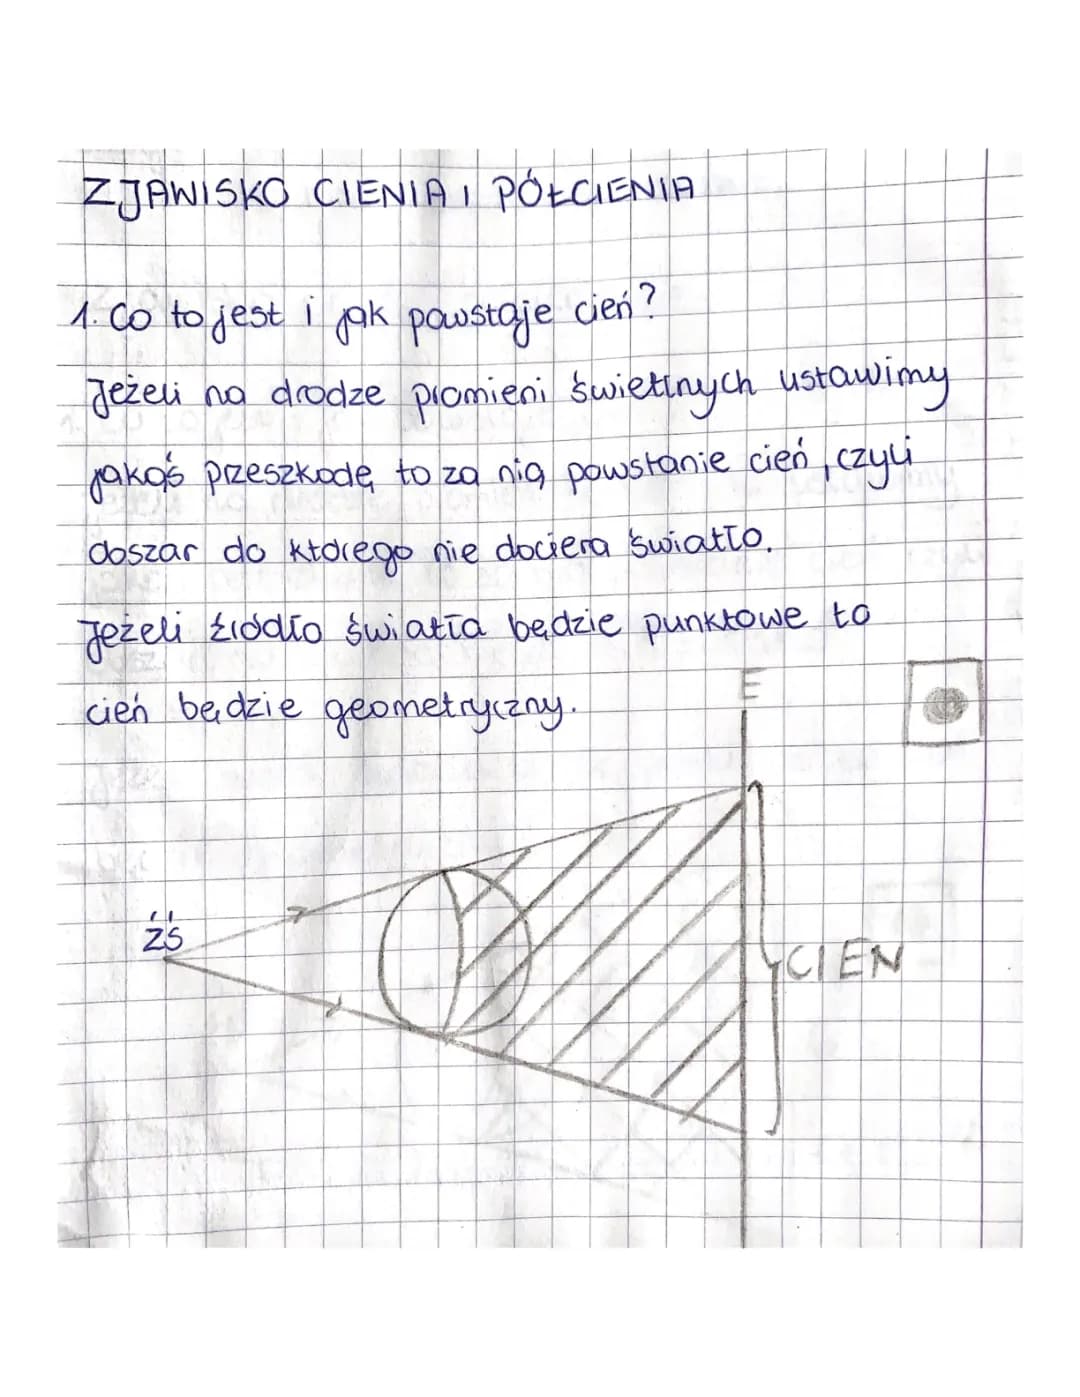 ZJAWISKO CIENIA I PÓŁCIENIA
1. Co to jest i jak powstaje cień?
Jeżeli na drodze promieni świetlnych ustawimy
jakąś przeszkodę to za nią powstanie cień, czyli
obszar do którego nie dociera światło.
Jeżeli źródło światła będzie punktowe to
cień będzie geometryczny.
E
ŹŚ
CIEŃ